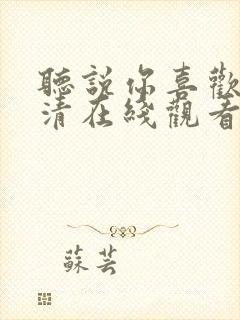 聽說你喜歡
清在綫觀看
蘇芸